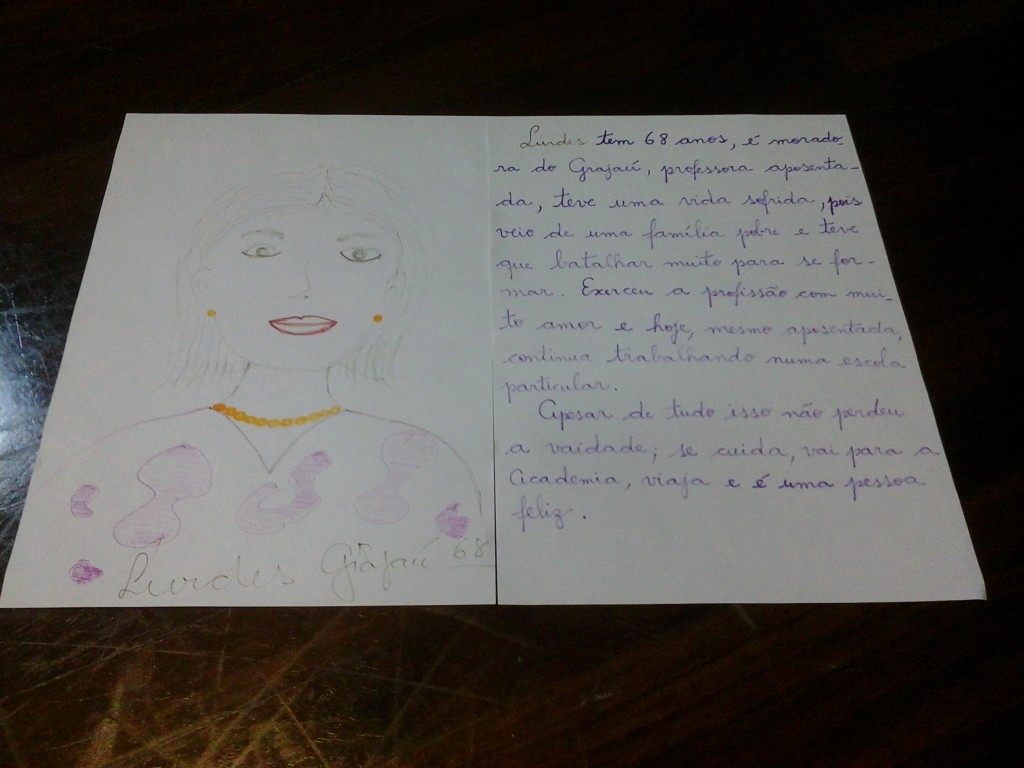 Lurdes Grajaú 68
Lurdes tem 68 anos, é morado-
ra do Grajaú, professora aposenta-
da, teve uma vida sofrida, pois
veio de uma família pobre e teve
que batalhar muito para se for-
mar. Exerceu a profissão com mui-
to amor e hoje, mesmo aposentada,
continua trabalhando numa escola
particular.
Apesar de tudo isso não perdeu
a vaidade; se cuida, vai para a
Academia, viaja e é uma pessoa
feliz.